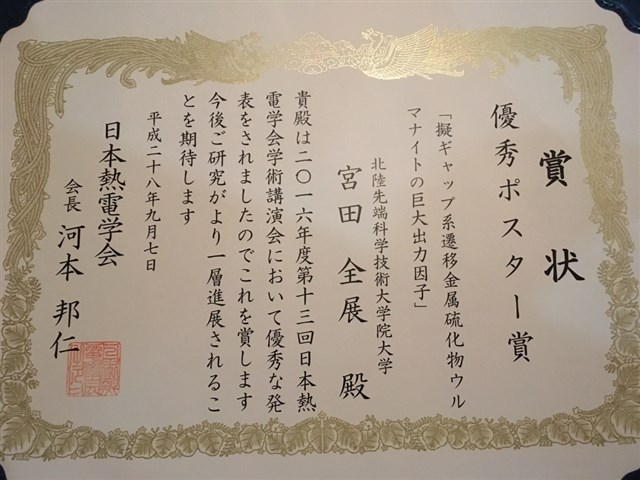 賞状
優秀ポスター賞
「擬ギャップ系遷移金属硫化物ウル
マナイトの巨大出力因子」
北陸先端科学技術大学院大学
宮田全展 殿
貴殿は二〇一六年度第十三回日本熱
電学会学術講演会において優秀な発
表をされましたのでこれを賞します
今後ご研究がより一層進展されるこ
とを期待します
平成二十八年九月七日
日本熱電学会
会長 河本邦仁